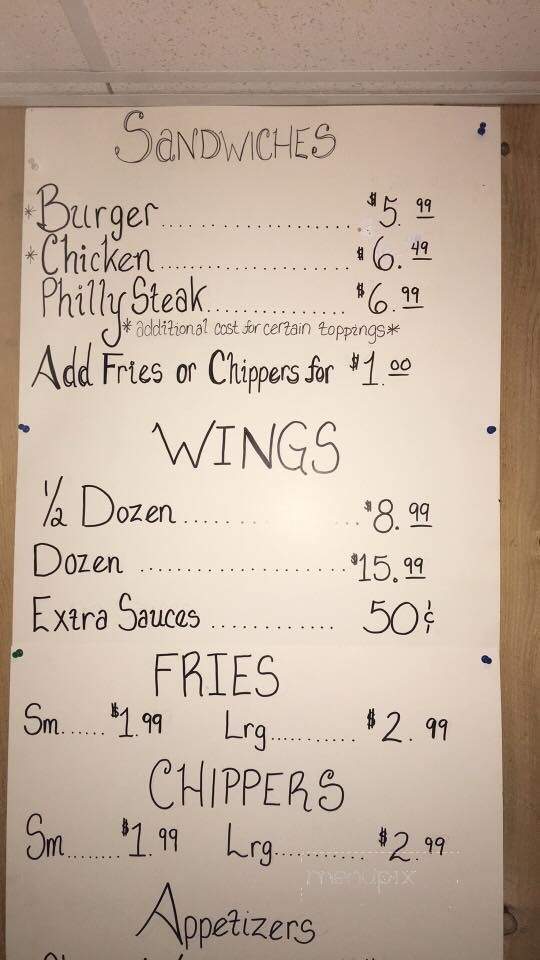 SANDWICHES
*Burger.................... $5.99
*Chicken................... $6.49
Philly Steak.............. $6.99
*additional cost for certain toppings*
Add Fries or Chippers for $1.00
WINGS
1/2 Dozen...... ... $8.99
Dozen ................... $15.99
Extra Sauces ............ 50¢
FRIES
Sm...... $1.99 Lrg.......... $2.99
CHIPPERS
Sm........ $1.99 Lrg........... $2.99
menupix
Appetizers